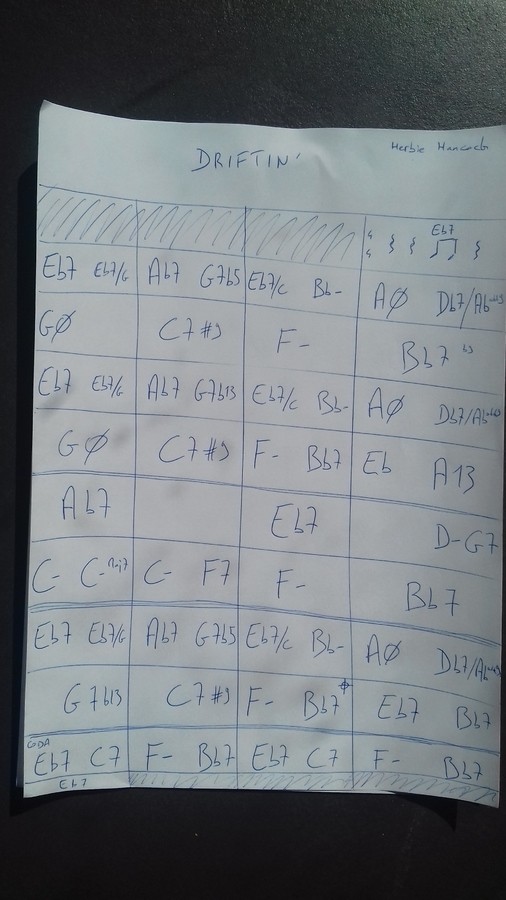 DRIFTIN'
Herbie Hancock
Eb7
Eb7 Eb7/G Ab7 G7b5 Eb7/C Bb- AØ Db7/Ab
GØ C7#9 F- Bb7 b9
Eb7 Eb7/G Ab7 G7b13 Eb7/C Bb- AØ Db7/Ab
GØ C7#9 F- Bb7 Eb A13
Ab7 Eb7 D-G7
C- C-maj7 C- F7 F- Bb7
Eb7 Eb7/G Ab7 G7b5 Eb7/C Bb- AØ Db7/Ab
G7b13 C7#9 F- Bb7 Eb7 Bb7
CODA
Eb7 C7 F- Bb7 Eb7 C7 F- Bb7
Eb7